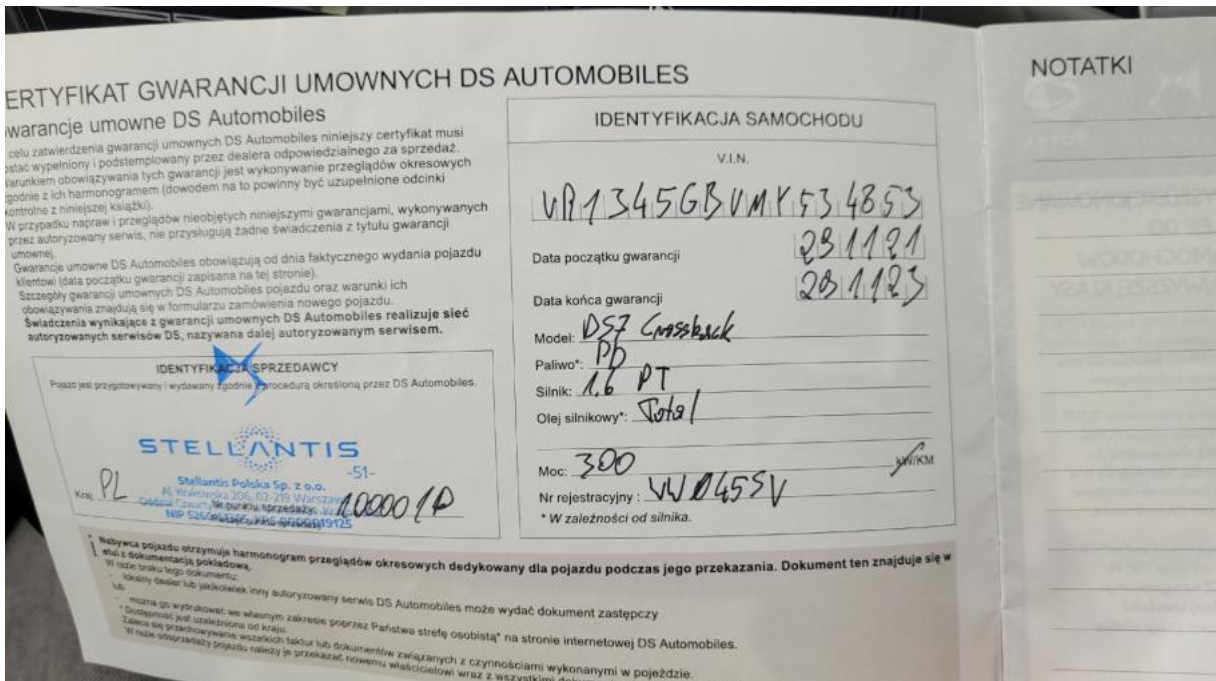 ERTYFIKAT GWARANCJI UMOWNYCH DS AUTOMOBILES
warancje umowne DS Automobiles
celu zatwierdzenia gwarancji umownych DS Automobiles niniejszy certyfikat musi
ostać wypełniony i podstemplowany przez dealera odpowiedzialnego za sprzedaż.
Warunkiem obowiązywania tych gwarancji jest wykonywanie przeglądów okresowych
zgodnie z ich harmonogramem (dowodem na to powinny być uzupełnione odcinki
kontrolne z niniejszej książki).
W przypadku napraw i przeglądów nieobjętych niniejszymi gwarancjami, wykonywanych
przez autoryzowany serwis, nie przysługują żadne świadczenia z tytułu gwarancji
umownej.
Gwarancje umowne DS Automobiles obowiązują od dnia faktycznego wydania pojazdu
klientowi (data początku gwarancji zapisana na tej stronie).
Szczegóły gwarancji umownych DS Automobiles pojazdu oraz warunki ich
obowiązywania znajdują się w formularzu zamówienia nowego pojazdu.
Świadczenia wynikające z gwarancji umownych DS Automobiles realizuje sieć
autoryzowanych serwisów DS, nazywana dalej autoryzowanym serwisem.
IDENTYFIKACJA SPRZEDAWCY
Pojazd jest przygotowywany i wydawany zgodnie z procedurą określoną przez DS Automobiles.
STELLANTIS
-51-
Stellantis Polska Sp. z o.o.
Al. Krakowska 206, 02-219 Warszawa
Kraj: PL
Nr punktu sprzedaży: 100001P
IDENTYFIKACJA SAMOCHODU
V.I.N.
VR1345GBVMY534853
Data początku gwarancji 291121
Data końca gwarancji 291123
Model: DS7 Crossback
Paliwo*: Pb
Silnik: 1,6 PT
Olej silnikowy*: Total
Moc: 300 kW/KM
Nr rejestracyjny: WW045SV
* W zależności od silnika.
Nabywca pojazdu otrzymuje harmonogram przeglądów okresowych dedykowany dla pojazdu podczas jego przekazania. Dokument ten znajduje się w
etui z dokumentacją pokładową.
W razie braku tego dokumentu:
- lokalny dealer lub jakikolwiek inny autoryzowany serwis DS Automobiles może wydać dokument zastępczy
lub
- można go wydrukować we własnym zakresie poprzez Państwa strefę osobistą* na stronie internetowej DS Automobiles.
* Dostępność jest uzależniona od kraju.
Zaleca się przechowywanie wszelkich faktur lub dokumentów związanych z czynnościami wykonanymi w pojeździe.
W razie odsprzedaży pojazdu należy je przekazać nowemu właścicielowi wraz z wszystkimi
NOTATKI